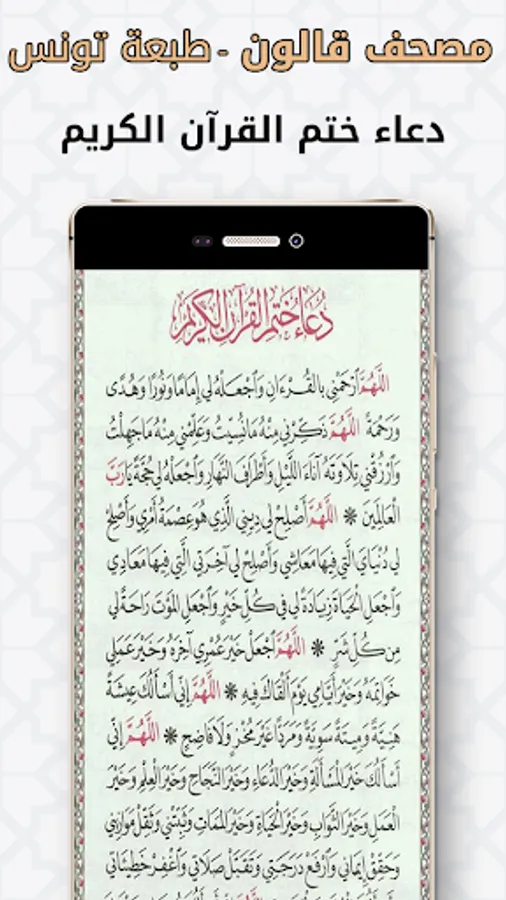 مصحف قالون - طبعة تونس
دعاء ختم القرآن الكريم
دُعَاءُ خَتْمِ الْقُرْآنِ الْكَرِيمِ
اَللَّهُمَّ ارْحَمْنِي بِالْقُرْءَانِ وَاجْعَلْهُ لِي إِمَامًا وَنُورًا وَهُدًى
وَرَحْمَةً اَللَّهُمَّ ذَكِّرْنِي مِنْهُ مَا نُسِّيتُ وَعَلِّمْنِي مِنْهُ مَا جَهِلْتُ
وَارْزُقْنِي تِلَاوَتَهُ آنَاءَ اللَّيْلِ وَأَطْرَافَ النَّهَارِ وَاجْعَلْهُ لِي حُجَّةً يَا رَبَّ
الْعَالَمِينَ * اَللَّهُمَّ أَصْلِحْ لِي دِينِي الَّذِي هُوَ عِصْمَةُ أَمْرِي وَأَصْلِحْ
لِي دُنْيَايَ الَّتِي فِيهَا مَعَاشِي وَأَصْلِحْ لِي آخِرَتِي الَّتِي فِيهَا مَعَادِي
وَاجْعَلِ الْحَيَاةَ زِيَادَةً لِي فِي كُلِّ خَيْرٍ وَاجْعَلِ الْمَوْتَ رَاحَةً لِي
مِن كُلِّ شَرٍّ * اَللَّهُمَّ اجْعَلْ خَيْرَ عُمْرِي آخِرَهُ وَخَيْرَ عَمَلِي
خَوَاتِمَهُ وَخَيْرَ أَيَّامِي يَوْمَ أَلْقَاكَ فِيهِ * اَللَّهُمَّ إِنِّي أَسْأَلُكَ عِيشَةً
هَنِيَّةً وَمِيتَةً سَوِيَّةً وَمَرَدًّا غَيْرَ مُخْزٍ وَلَا فَاضِحٍ * اَللَّهُمَّ إِنِّي
أَسْأَلُكَ خَيْرَ الْمَسْأَلَةِ وَخَيْرَ الدُّعَاءِ وَخَيْرَ النَّجَاحِ وَخَيْرَ الْعِلْمِ وَخَيْرَ
الْعَمَلِ وَخَيْرَ الثَّوَابِ وَخَيْرَ الْحَيَاةِ وَخَيْرَ الْمَمَاتِ وَثَبِّتْنِي وَثَقِّلْ مَوَازِينِي
وَحَقِّقْ إِيمَانِي وَارْفَعْ دَرَجَتِي وَتَقَبَّلْ صَلَاتِي وَاغْفِرْ خَطِيئَاتِي